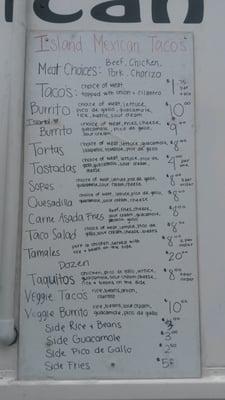 ican
Island Mexican Tacos
Meat Choices: Beef, Chicken,
Pork, Chorizo
Tacos: choice of meat,
topped with onion + cilantro
Burrito choice of meat, lettuce,
pico de gallo, guacamole,
rice, beans, sour cream $10.00
Island Burrito choice of meat, fries, cheese,
guacamole, pico de gallo,
sour cream $9.00
Tortas choice of meat, lettuce, guacamole, $8.00
Tostadas choice of meat, lettuce, pico de
gallo, guacamole, sour cream,
cheese
Sopes choice of meat, lettuce, pico de gallo,
guacamole, sour cream, cheese
Quesadilla choice of meat, lettuce, pico de gallo,
guacamole, sour cream, cheese
Carne Asada Fries beef, fries, cheese,
sour cream, guacamole,
Taco Salad choice of meat, lettuce, pico de
gallo, sour cream, cheese, beans
Tamales pork or chicken served with
rice + beans on the side
Dozen $20.00
Taquitos chicken, pico de gallo, lettuce,
guacamole, sour cream, cheese,
rice + beans on the side
Veggie Tacos rice, beans, onion,
cilantro
Veggie Burrito rice, beans, sour cream,
guacamole, pico de gallo $10.00
Side Rice + Beans
Side Guacamole
Side Pico de Gallo
Side Fries